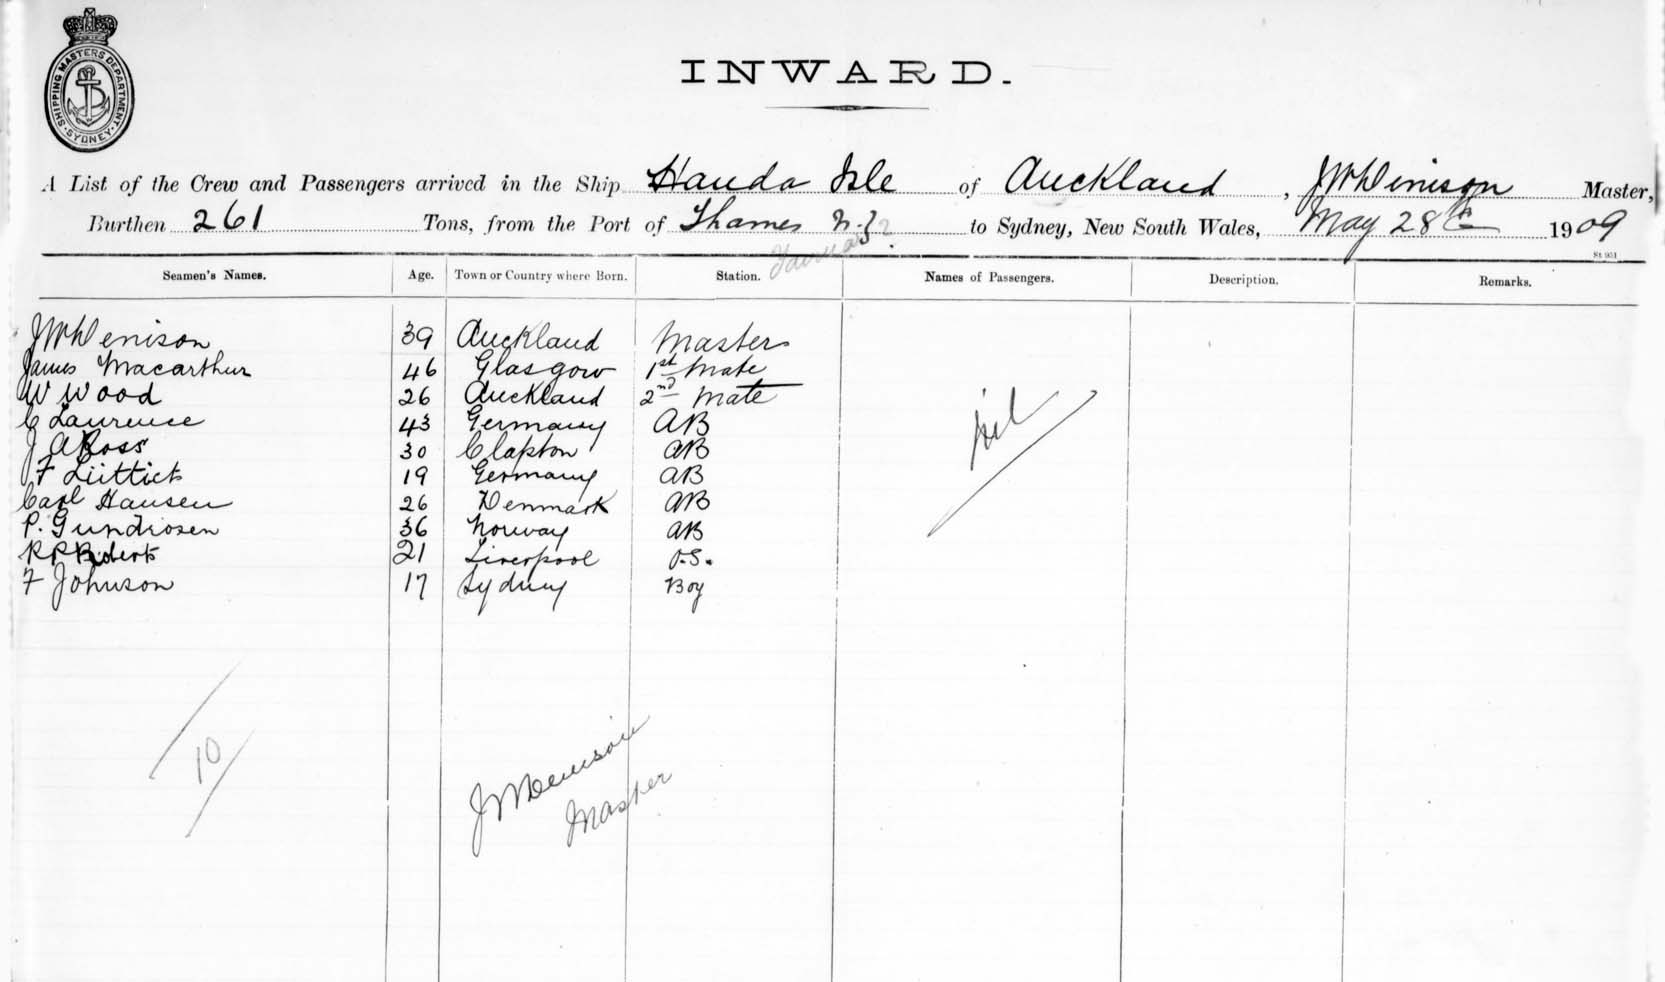 SHIPPING MASTERS DEPARTMENT
SYDNEY
INWARD.
A List of the Crew and Passengers arrived in the Ship Handa Isle of Auckland, J W Denison Master,
Burthen 261 Tons, from the Port of Thames N.Z. to Sydney, New South Wales, May 28th 1909
St 951
Seamen's Names. Age. Town or Country where Born. Station. Names of Passengers. Description. Remarks.
J W Denison 39 Auckland Master
James Macarthur 46 Glasgow 1st Mate
W Wood 26 Auckland 2nd Mate
C Laurence 43 Germany AB
J A Ross 30 Clapton AB
F Lüttich 19 Germany AB
Carl Hansen 26 Denmark AB
P. Gundrosen 36 Norway AB
R P Roberts 21 Liverpool O.S.
F Johnson 17 Sydney Boy
nil
10
J W Denison
Master